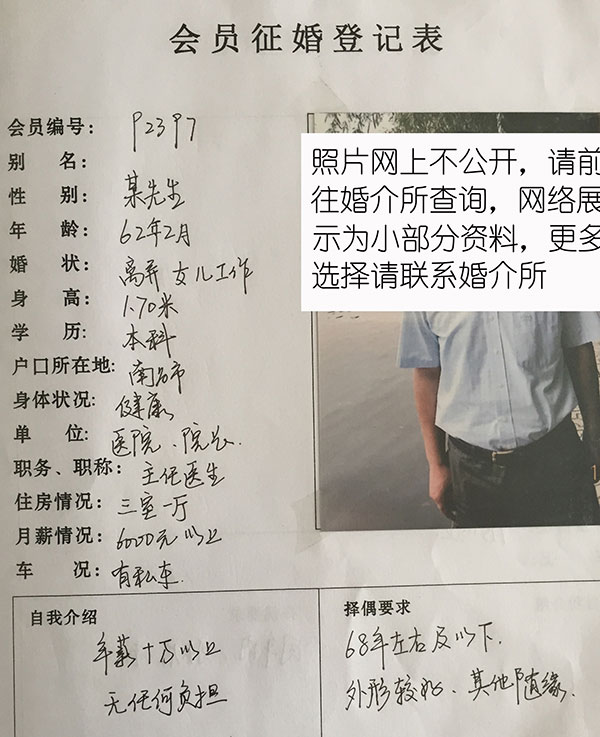 会员征婚登记表
会员编号： P2397
别 名：
性 别： 某先生
年 龄： 62年2月
婚 状： 离异 女儿工作
身 高： 1.70米
学 历： 本科
户口所在地： 南昌市
身体状况： 健康
单 位： 医院、院长
职务、职称： 主任医生
住房情况： 三室一厅
月薪情况： 6000元以上
车 况： 有私车
照片网上不公开，请前
往婚介所查询，网络展
示为小部分资料，更多
选择请联系婚介所
自我介绍
年薪十万以上
无任何负担
择偶要求
68年左右及以下.
外形较好、其他随缘.